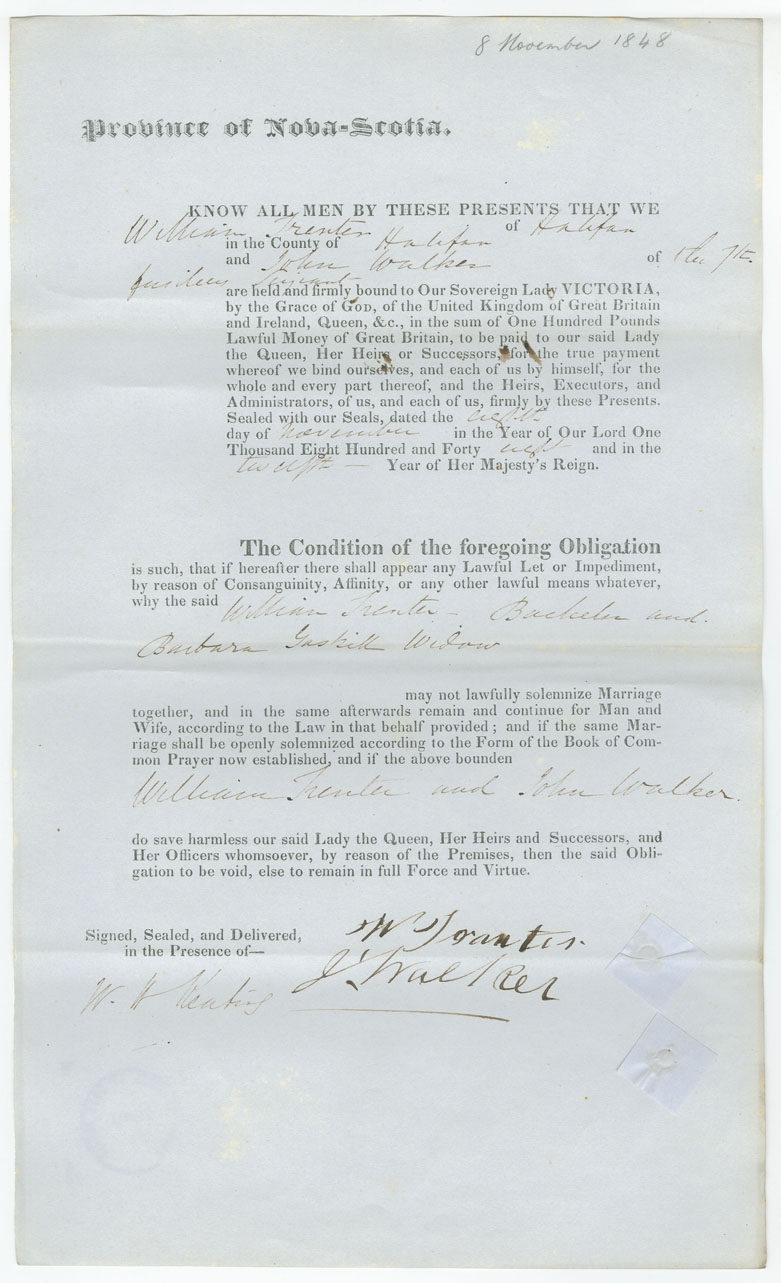 8 November 1848
Province of Nova-Scotia.
KNOW ALL MEN BY THESE PRESENTS THAT WE
William Trenter of Halifax
in the County of Halifax
and John Walker of the 7th.
fusileers Serjeant
are held and firmly bound to Our Sovereign Lady VICTORIA,
by the Grace of GOD, of the United Kingdom of Great Britain
and Ireland, Queen, &c., in the sum of One Hundred Pounds
Lawful Money of Great Britain, to be paid to our said Lady
the Queen, Her Heirs or Successors, for the true payment
whereof we bind ourselves, and each of us by himself, for the
whole and every part thereof, and the Heirs, Executors, and
Administrators, of us, and each of us, firmly by these Presents.
Sealed with our Seals, dated the eighth
day of November in the Year of Our Lord One
Thousand Eight Hundred and Forty eight and in the
twelfth — Year of Her Majesty's Reign.
The Condition of the foregoing Obligation
is such, that if hereafter there shall appear any Lawful Let or Impediment,
by reason of Consanguinity, Affinity, or any other lawful means whatever,
why the said William Trenter - Bachelor and.
Barbara Gaskill Widow
may not lawfully solemnize Marriage
together, and in the same afterwards remain and continue for Man and
Wife, according to the Law in that behalf provided; and if the same Mar-
riage shall be openly solemnized according to the Form of the Book of Com-
mon Prayer now established, and if the above bounden
William Trenter and John Walker.
do save harmless our said Lady the Queen, Her Heirs and Successors, and
Her Officers whomsoever, by reason of the Premises, then the said Obli-
gation to be void, else to remain in full Force and Virtue.
Signed, Sealed, and Delivered,
in the Presence of—
Wm Tranter.
J. Walker
W. H Keating